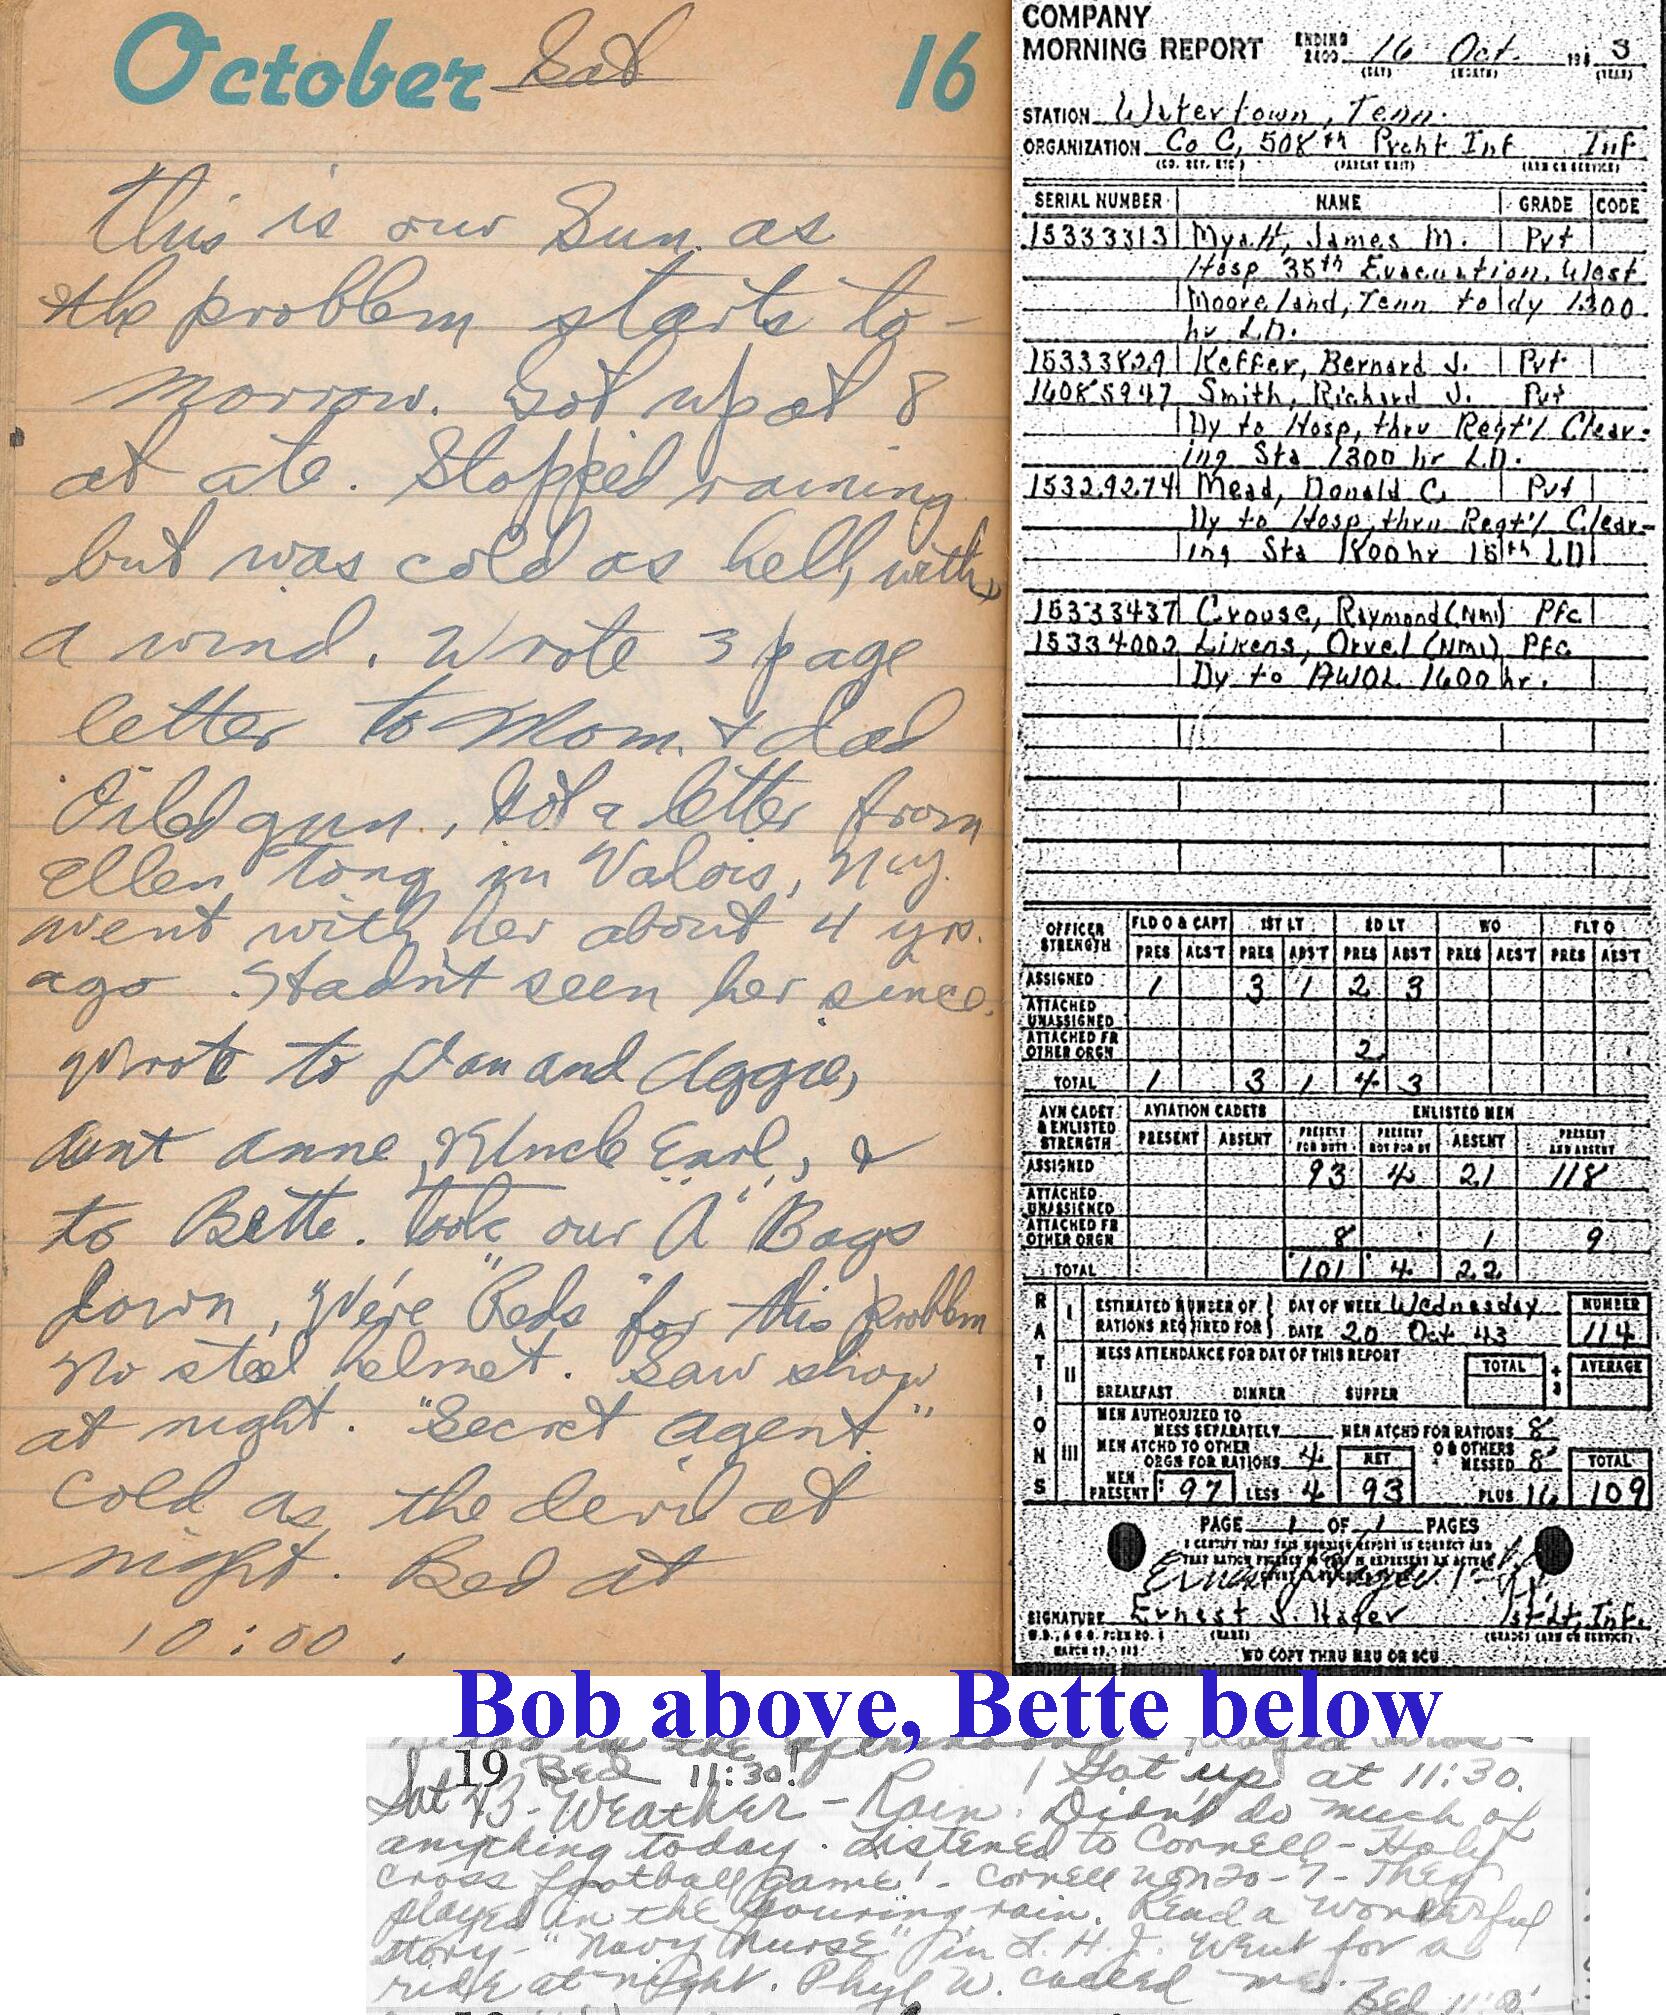 October Sat 16
This is our Sun. as
the problem starts to-
morrow. Got up at 8
at ate. Stopped raining
but was cold as hell, with
a wind. Wrote 3 page
letter to Mom. + dad
Oiled gun, Got a letter from
Ellen Tong in Valois, N.Y.
went with her about 4 yrs.
ago. Hadn't seen her since.
Wrote to Dan and Aggie,
Aunt Anne, & Uncle Earl, &
to Bette. Took our "A" Bags
down, We're "Reds" for this problem
No steel helmet. Saw show
at night. "Secret Agent"
Cold as the devil at
night. Bed at
10:00.
COMPANY
MORNING REPORT ENDING 2400 16 Oct. 194 3
(DAY) (MONTH) (YEAR)
STATION Watertown, Tenn.
ORGANIZATION Co C, 508th Prcht Inf Inf
(CO. DET. ETC) (PARENT UNIT) (ARM OR SERVICE)
SERIAL NUMBER NAME GRADE CODE
15333313 Myatt, James M. Pvt
Hosp 35th Evacuation, West
Mooreland, Tenn to dy 1300
hr L.D.
15333829 Keffer, Bernard J. Pvt
16085947 Smith, Richard J. Pvt
Dy to Hosp, thru Regt'l Clear-
ing Sta 1300 hr L.D.
15329274 Mead, Donald C. Pvt
Dy to Hosp, thru Regt'l Clear-
ing Sta 1800 hr 15th LD
15333437 Crouse, Raymond (NMI) Pfc
15334002 Likens, Orvel (NMI) Pfc
Dy to AWOL 1600 hr.
OFFICER STRENGTH FLD O & CAPT 1ST LT 2D LT WO FLT O
PRES ABS'T PRES ABS'T PRES ABS'T PRES ABS'T PRES ABS'T
ASSIGNED 1 3 1 2 3
ATTACHED UNASSIGNED
ATTACHED FR OTHER ORGN 2
TOTAL 1 3 1 4 3
AVN CADET & ENLISTED STRENGTH AVIATION CADETS ENLISTED MEN
PRESENT ABSENT PRESENT FOR DUTY PRESENT NOT FOR DY ABSENT PRESENT AND ABSENT
ASSIGNED 93 4 21 118
ATTACHED UNASSIGNED
ATTACHED FR OTHER ORGN 8 1 9
TOTAL 101 4 22
RATIONS
I ESTIMATED NUMBER OF RATIONS REQUIRED FOR DAY OF WEEK Wednesday NUMBER
DATE 20 Oct 43 114
II MESS ATTENDANCE FOR DAY OF THIS REPORT TOTAL ÷ 3 AVERAGE
BREAKFAST DINNER SUPPER
III MEN AUTHORIZED TO MESS SEPARATELY MEN ATCHD FOR RATIONS 8
MEN ATCHD TO OTHER ORGN FOR RATIONS 4 NET O & OTHERS MESSED 8 TOTAL
MEN PRESENT 97 LESS 4 93 PLUS 16 109
PAGE 1 OF 1 PAGES
I CERTIFY THAT THIS MORNING REPORT IS CORRECT AND
THAT RATION FIGURES IN PART III REPRESENT AN ACTUAL
SIGNATURE Ernest J. Hafer 1st Lt, Inf.
W.D., A.G.O. FORM NO. 1 (NAME) (GRADE) (ARM OR SERVICE)
NO COPY THRU MRU OR SCU
Bob above, Bette below
in the afternoon
19 Bed 11:30! Got up at 11:30.
Sat 43 - Weather - Rain! Didn't do much of
anything today. Listened to Cornell - Holy
Cross football game! - Cornell won 20-7 - They
played in the pouring rain. Read a wonderful
story - "Navy Nurse" in L. H. J. Went for a
ride at night. Phyl W. called me.
Bed